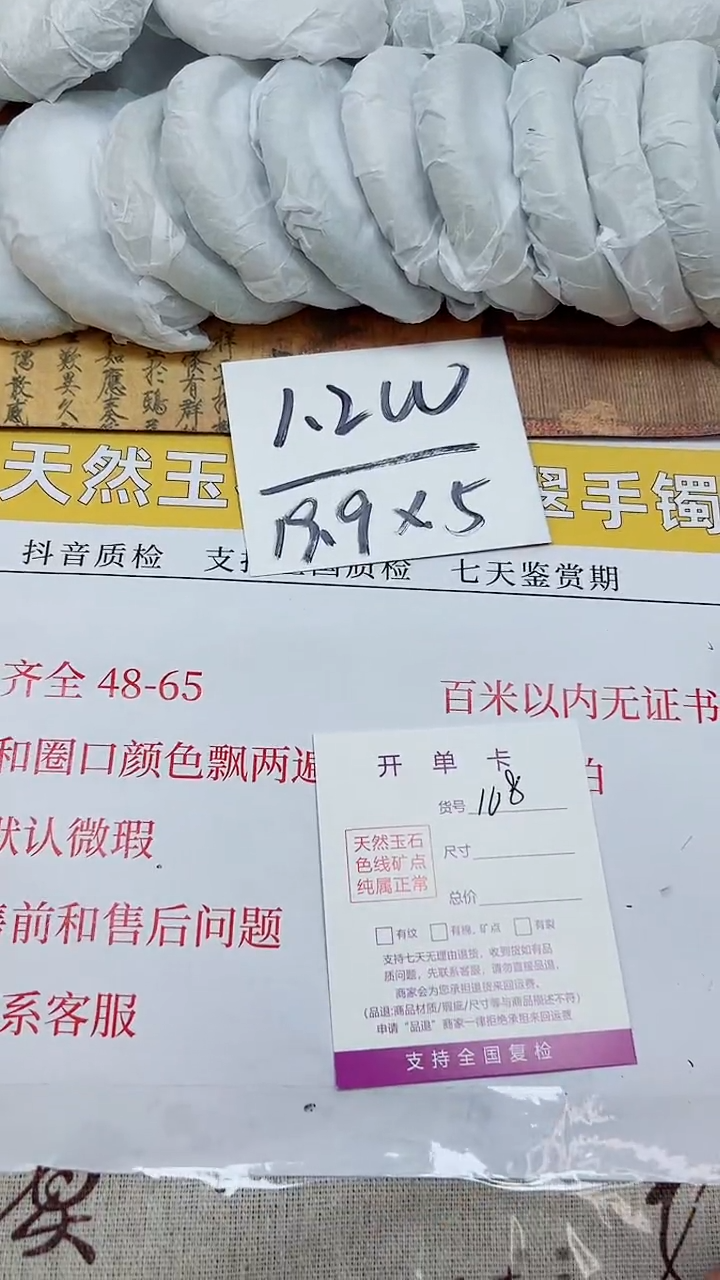 1.2W
19.9×5
天然玉
翠手镯
抖音质检 支 国质检 七天鉴赏期
齐全 48-65
百米以内无证书
和圈口颜色飘两遍
拍
默认微瑕
售前和售后问题
系客服
开单卡
货号 108
天然玉石
色线矿点
纯属正常
尺寸
总价
有纹 有棉、矿点 有裂
支持七天无理由退货，收到货如有品
质问题，先联系客服，请勿直接品退，
商家会为您承担退货来回运费。
(品退:商品材质/瑕疵/尺寸等与商品描述不符)
申请“品退”商家一律拒绝承担来回运费
支持全国复检